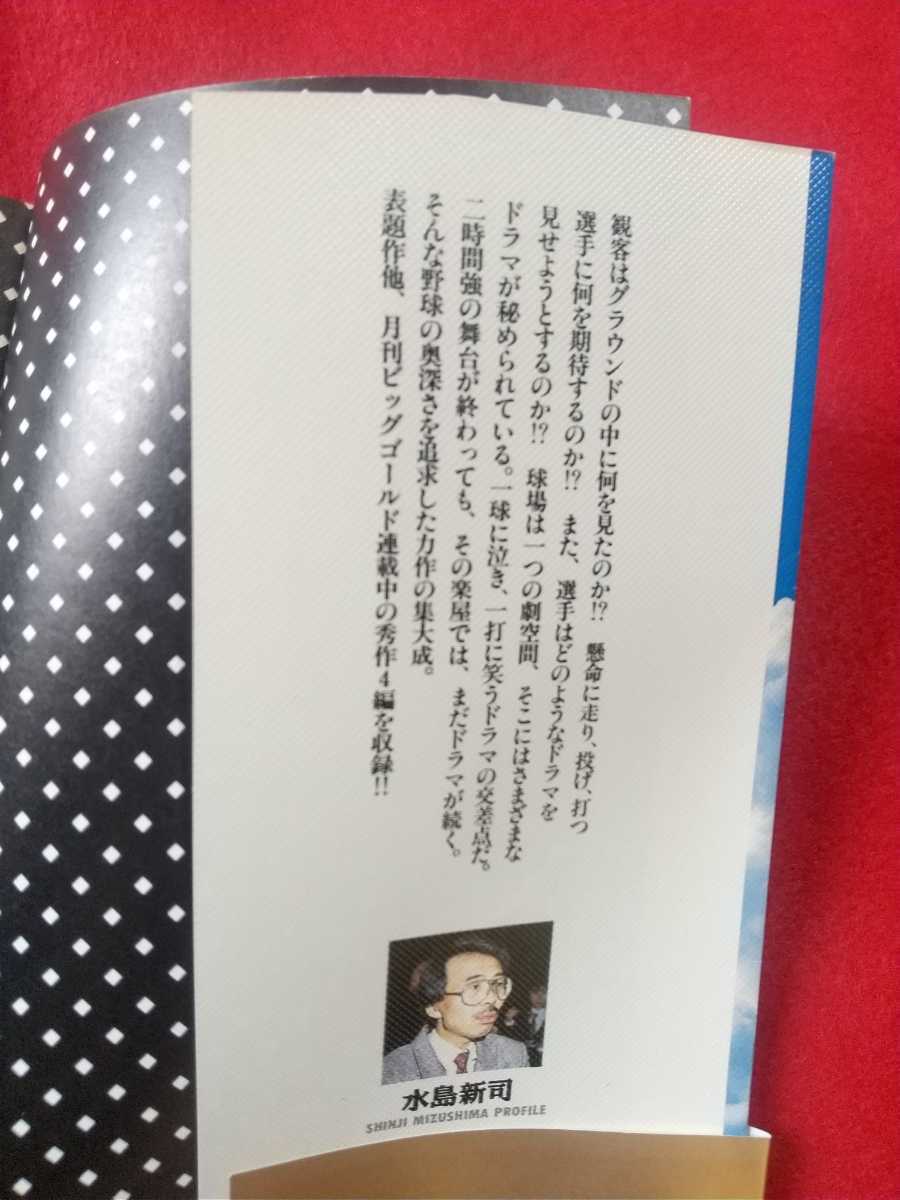 観客はグラウンドの中に何を見たのか!?　懸命に走り、投げ、打つ
選手に何を期待するのか!?　また、選手はどのようなドラマを
見せようとするのか!?　球場は一つの劇空間、そこにはさまざまな
ドラマが秘められている。一球に泣き、一打に笑うドラマの交差点だ。
二時間強の舞台が終わっても、その楽屋では、まだドラマが続く。
そんな野球の奥深さを追求した力作の集大成。
表題作他、月刊ビッグゴールド連載中の秀作4編を収録!!
水島新司
SHINJI MIZUSHIMA PROFILE